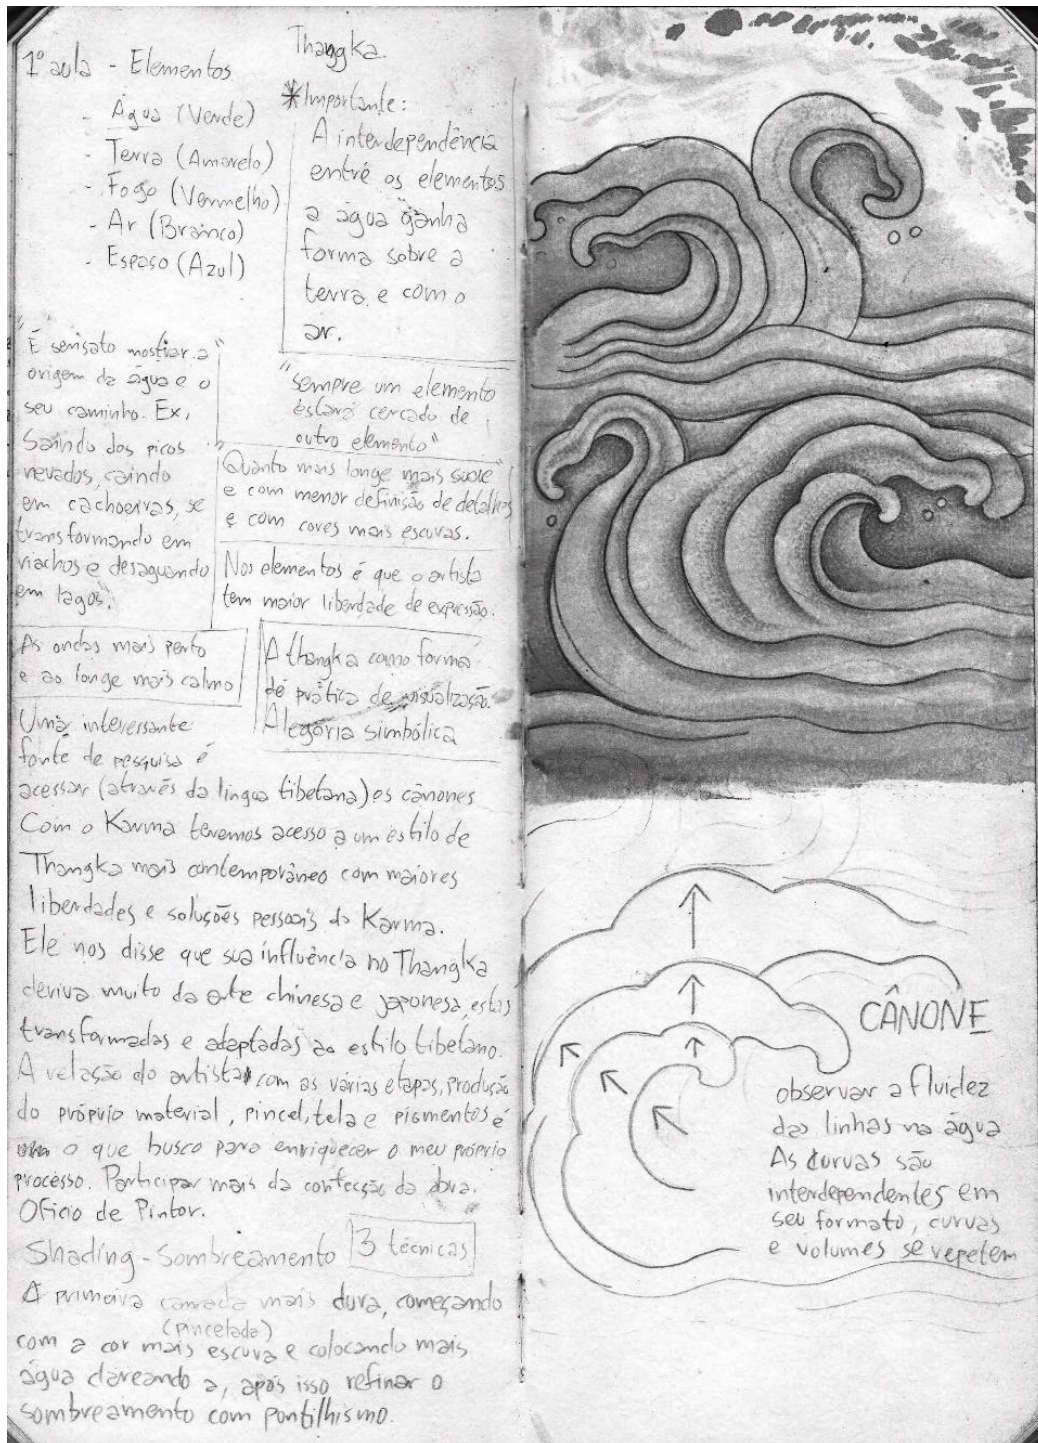 1º aula - Elementos
- Água (Verde)
- Terra (Amarelo)
- Fogo (Vermelho)
- Ar (Branco)
- Espaso (Azul)
Thangka
*Importante:
A interdependência
entre os elementos
a água ganha
forma sobre a
terra, e com o
ar.
"É sensato mostrar a
origem da água e o
seu caminho. Ex,
Saindo dos picos
nevados, caindo
em cachoeiras, se
transformando em
riachos e desaguando
em lagos."
"Sempre um elemento
estará cercado de
outro elemento"
"Quanto mais longe mais suave
e com menor definição de detalhes
e com cores mais escuras.
Nos elementos é que o artista
tem maior liberdade de expressão.
As ondas mais perto
e ao longe mais calmo
A thangka como forma
de prática de visualização.
Alegoria simbólica
Uma interessante
fonte de pesquisa é
acessar (através da lingua tibetana) os cânones
Com o Karma teremos acesso a um estilo de
Thangka mais contemporâneo com maiores
liberdades e soluções pessoais do Karma.
Ele nos disse que sua influência no Thangka
deriva muito da arte chinesa e japonesa, estas
transformadas e adaptadas ao estilo tibetano.
A relação do artista com as várias etapas, produção
do próprio material, pincel, tela e pigmentos é
o que busco para enriquecer o meu próprio
processo. Participar mais da confecção da obra.
Oficio de Pintor.
Shading - Sombreamento 3 técnicas
A primeira camada mais dura, começando
(pincelada)
com a cor mais escura e colocando mais
água clareando a, após isso refinar o
sombreamento com pontilhismo.
CÂNONE
observar a fluidez
das linhas na água
As curvas são
interdependentes em
seu formato, curvas
e volumes se repetem